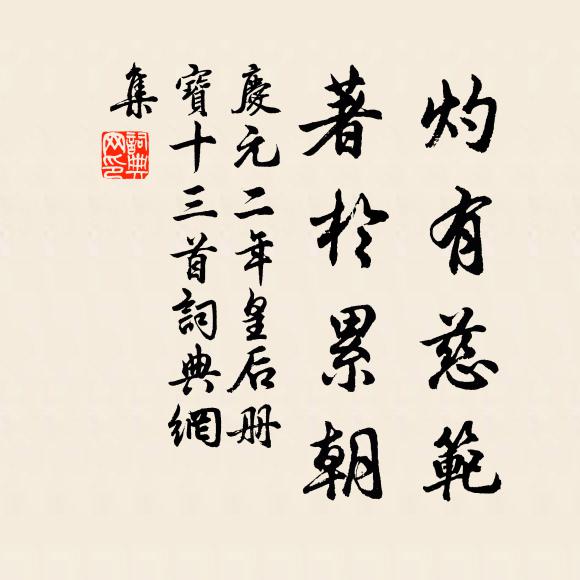 灼有慈範
著於累朝
慶元二年皇后册
寶十三首詞典網
集
詞典網印